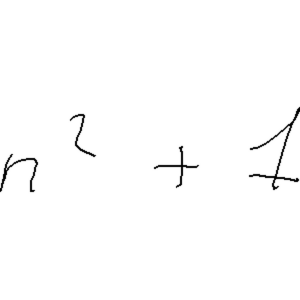 n² + 1